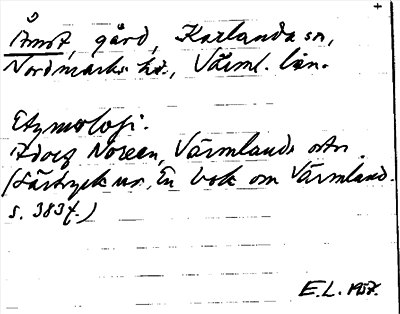 Åmot, gård, Karlanda sn,
Nordmarks hd., Värml. län.
Etymologi.
Adolf Noreen, Värmlands ortn.
(Särtryck ur, En bok om Värmland.
s. 383 f.)
E.L. 1957.